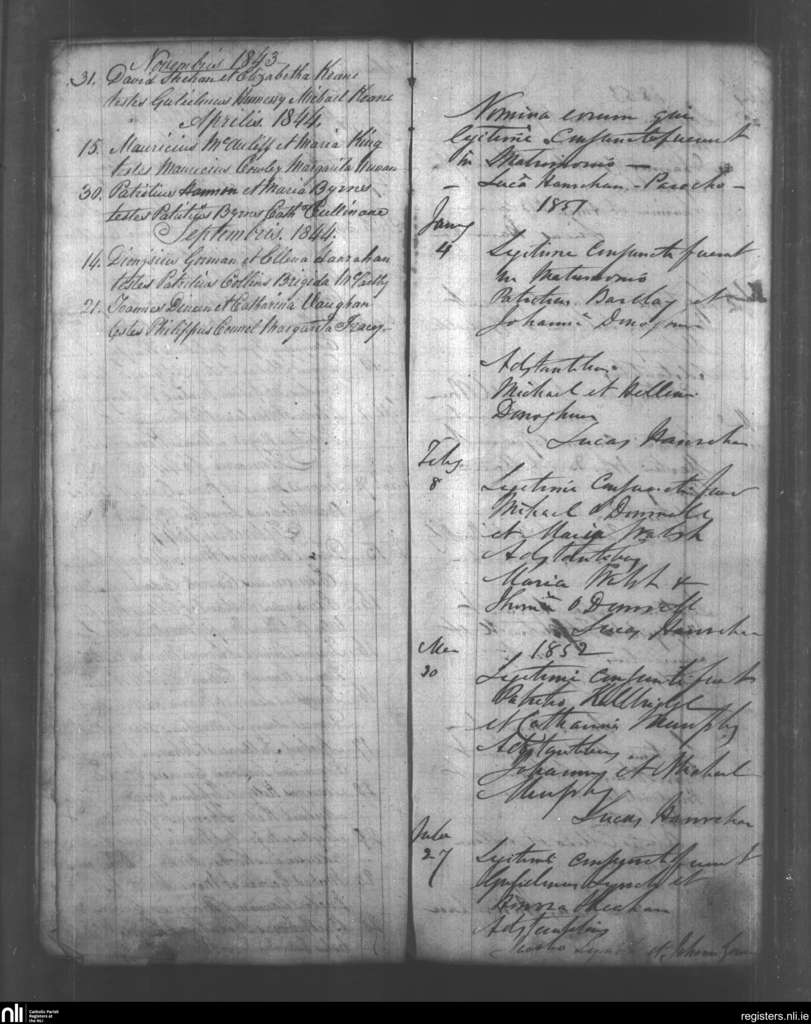 Novembris 1843
31. David Shehan et Elizabetha Keane
testes Gulielmus Hennesy Michael Keane
Aprilis 1844.
15. Mauricius McAuliff et Maria King
testes Mauricius Cowley Margarita
30. Patritius Hannon et Maria Byrnes
testes Patritius Byrnes Cath Cullinane
Septembris. 1844.
14. Dionysius Gorman et Ellena Hanrahan
testes Patritius Collins Brigida McCarthy
21. Joannes Dinan et Catharina Vaughan
testes Philippus Connel Margarita Tracy
Nomina eorum qui
legitime Conjuncti fuerunt
in Matrimonio —
Luca Hanrahan - Parocho -
1851
Jany
4 Legitime Conjuncti fuerunt
in Matrimonio
Patritius Barclay et
Johanna
Adstantibus
Michael et Hellena
Donoghue
Lucas Hanrahan
Feby
8 Legitime Conjuncti
Michael O Donnell
et Maria Walsh
Adstantibus
Maria Walsh &
Thoma O Donnell
Lucas Hanrahan
1852
30 Legitime Conjuncti fuerunt
et Catharina Murphy
Adstantibus
Johannes et Michael
Murphy
Lucas Hanrahan
27 Legitime conjuncti fuerunt
Gulielmus Lynch et
Honora Sheehan
Adstantibus
Lynch et
nli Catholic Parish
Registers at
the NLI
registers.nli.ie